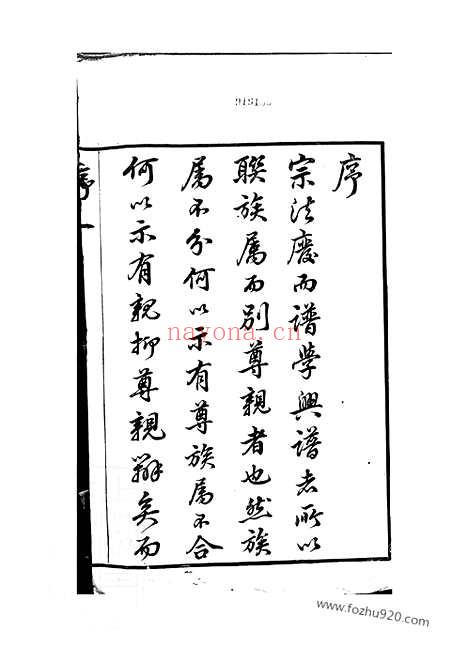 序
宗法廢而譜學興譜者所以
聯族属而別尊親者也然族
属不分何以示有尊族属不合
何以示有親抑尊親辨矣而
序 一
nayona.cn
www.fozhu920.com